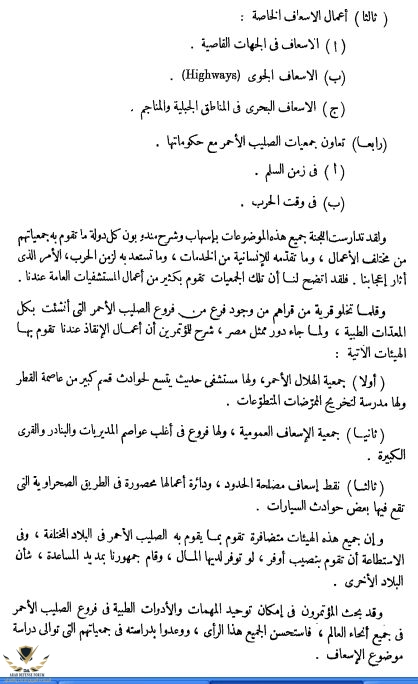 ( ثالثا ) أعمال الاسعاف الخاصة :
( أ ) الاسعاف فى الجهات القاصية .
(ب) الاسعاف الجوى (Highways) .
( ج ) الاسعاف البحرى فى المناطق الجبلية والمناجم .
(رابعـا) تعاون جمعيات الصليب الأحمر مع حكوماتها .
( أ ) فى زمن السلم .
(ب) فى وقت الحرب .
ولقد تدارست اللجنة جميع هذه الموضوعات بإسهاب وشرح مندوبون كل دولة ما تقوم به جمعياتهم
من مختلف الأعمال ، وما تقدّمه للإنسانية من الخدمات ، وما تستعد به لزمن الحرب، الأمر الذى
أثار إعجابنا . فلقد اتضح لنـا أن تلك الجمعيات تقوم بكثير من أعمال المستشفيات العامة عندنا .
وقلمـا تخلو قرية من قراهم من وجود فرع من فروع الصليب الأحمر التى أنشئت بكل
المعدّات الطبية ، ولمـا جاء دور ممثل مصر ، شرح للمؤتمرين أن أعمـال الإنقاذ عندنا تقوم بهـا
الهيئات الآتية :
( أولا ) جمعية الهلال الأحمر، ولها مستشفى حديث يتسع لحوادث قسم كبير من عاصمة القطر
ولها مدرسة لتخريج الممرّضات المتطوّعات .
( ثانيـا ) جمعية الإسعاف العمومية ، ولها فروع فى أغلب عواصم المديريات والبنادر والقرى
الكبيرة .
( ثالثـا ) نقط إسعاف مصلحة الحدود ، ودائرة أعمالها محصورة فى الطريق الصحراوية التى
تقع فيها بعض حوادث السيارات .
و إن جميع هذه الهيئات متضافرة تقوم بمـا يقوم به الصليب الأحمر فى البلاد المختلفة ، وفى
الاستطاعة أن تقوم بنصيب أوفر ، لو توفر لديها المـال ، وقام جمهورنا بمد يد المساعدة ، شأن
البلاد الأخرى .
وقد بحث المؤتمرون فى إمكان توحيد المهمات والأدوات الطبية فى فروع الصليب الأحمر
فى جميع أنحاء العالم ، فاستحسن الجميع هذا الرأى ، ووعدوا بدراسته فى جمعياتهم التى توالى دراسة
موضوع الإسعاف .
ARAB DEFENSE FORUM